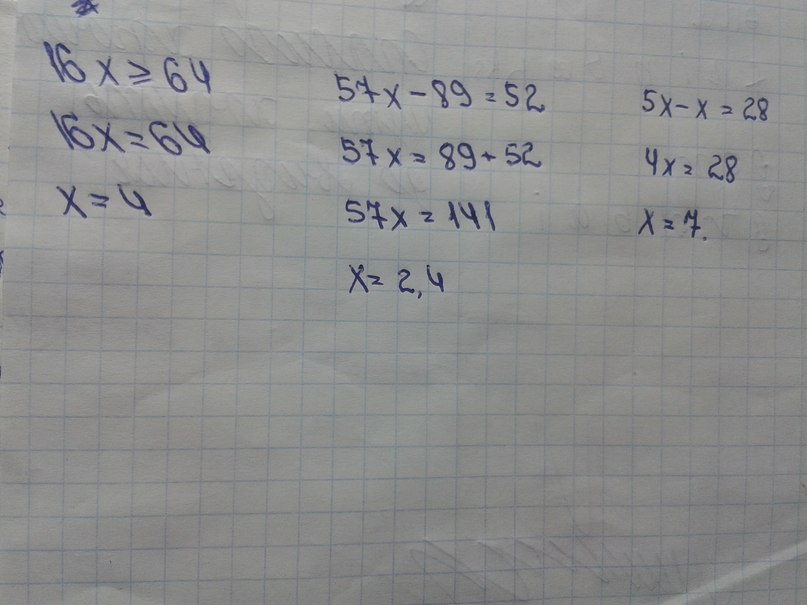 16x ≥ 64
16x = 64
x = 4
57x - 89 = 52
57x = 89 + 52
57x = 141
x = 2,4
5x - x = 28
4x = 28
x = 7.